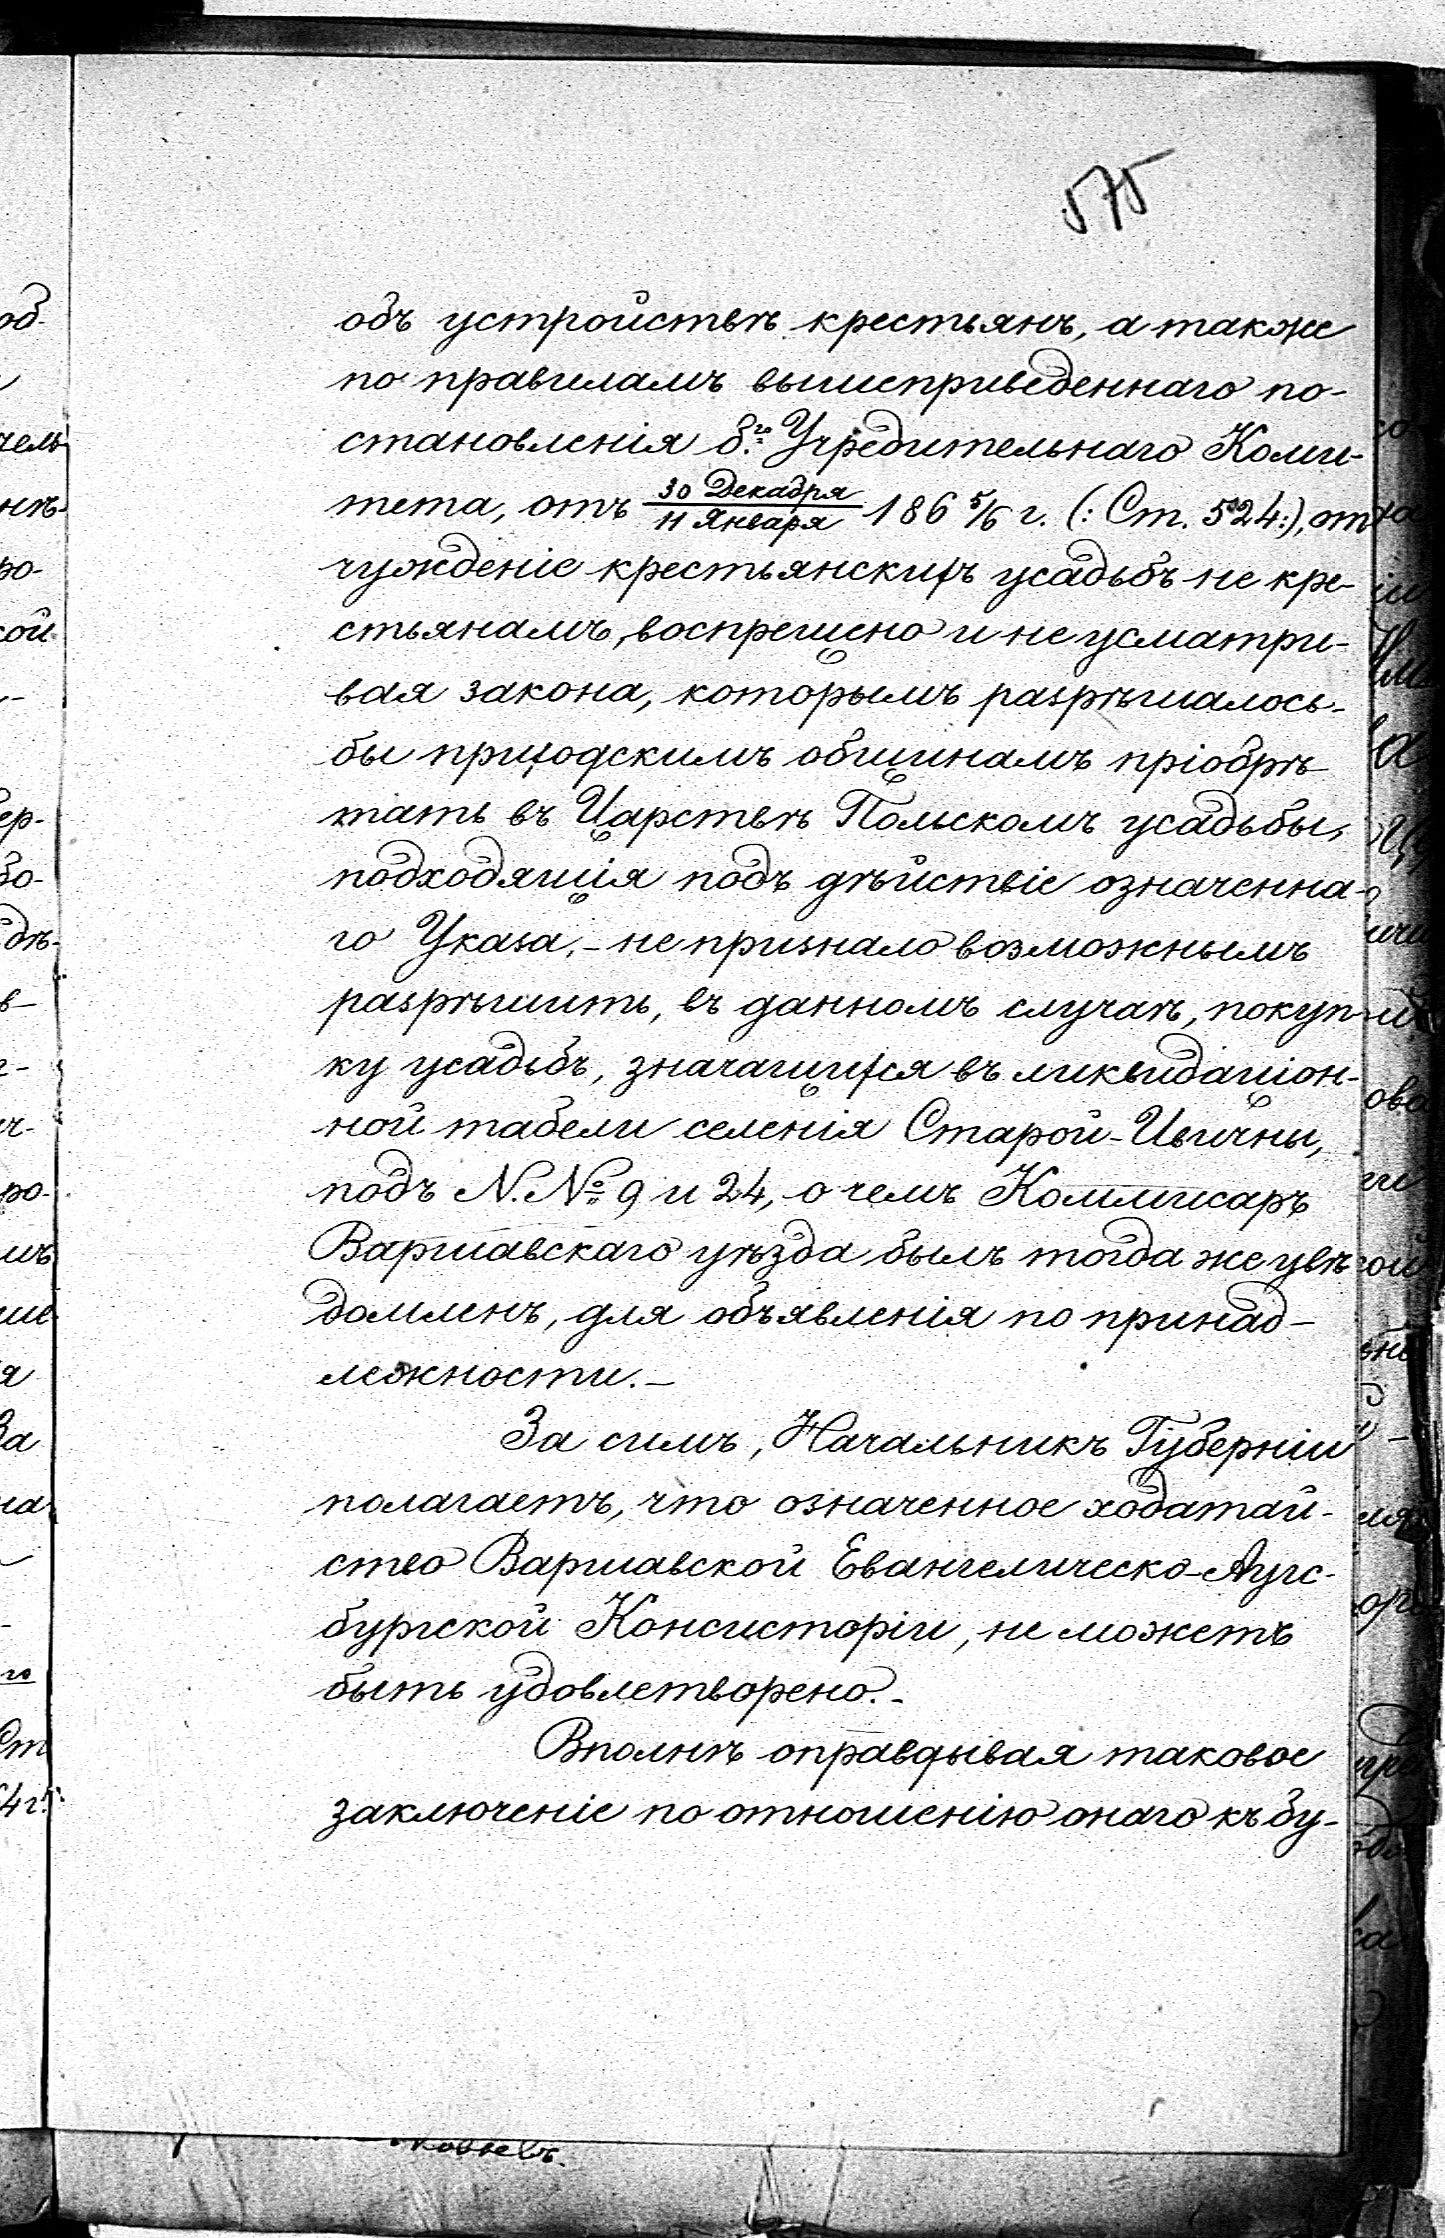 575
объ устройствѣ крестьянъ, а также
по правиламъ вышеприведеннаго по-
становленія б.го Учредительнаго Коми-
тета, отъ 30 Декабря/11 Января 186 5/6 г. (: Ст. 524:), от
чужденіе крестьянскихъ усадьбъ не кре-
стьянамъ, воспрещено и не усматри-
вая закона, которымъ разрѣшалось-
бы приходскимъ общинамъ пріобрѣ
тать въ Царствѣ Польскомъ усадьбы,
подходящія подъ дѣйствіе означенна-
го Указа,- не признало возможнымъ
разрѣшить, въ данномъ случаѣ, покуп-
ку усадьбъ, значащихся въ ликвидаціон-
ной табели селенія Старой-Ивични,
подъ N.№ 9 и 24, о чемъ Коммисаръ
Варшавскаго уѣзда былъ тогда же увѣ
домленъ, для объявленія по принад-
лежности.-
За симъ, Начальникъ Губерніи
полагаетъ, что означенное ходатай-
ство Варшавской Евангелическо-Аугс-
бургской Консисторіи, не можетъ
быть удовлетворено.-
Вполнѣ оправдывая таковое
заключеніе по отношенію онаго къ бу-